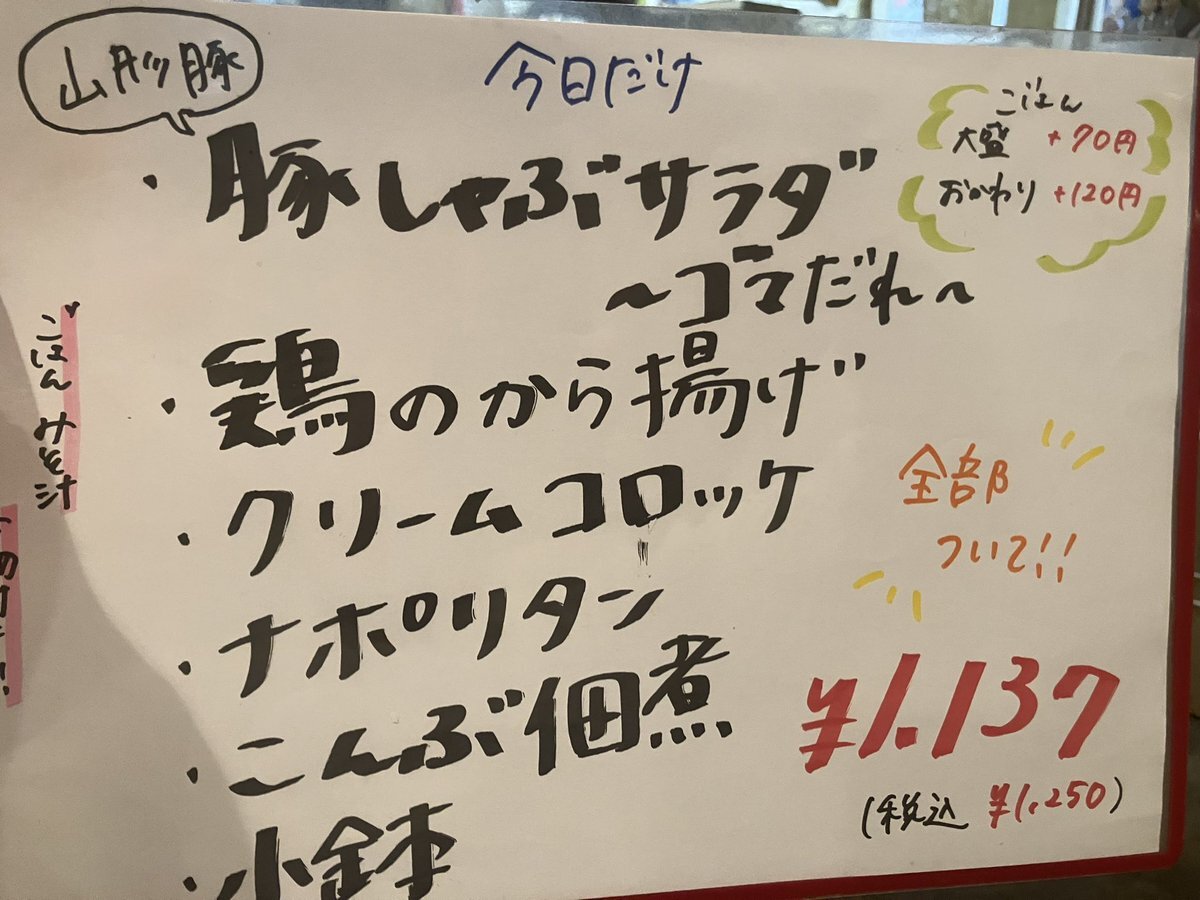 山形豚
今日だけ
・豚しゃぶサラダ
~ゴマだれ~
・鶏のから揚げ
・クリームコロッケ
・ナポリタン
・こんぶ佃煮
・小鉢
ごはん
大盛 +70円
おかわり +120円
全部
ついて!!
¥1.137
(税込 ¥1.250)
ごはん みそ汁